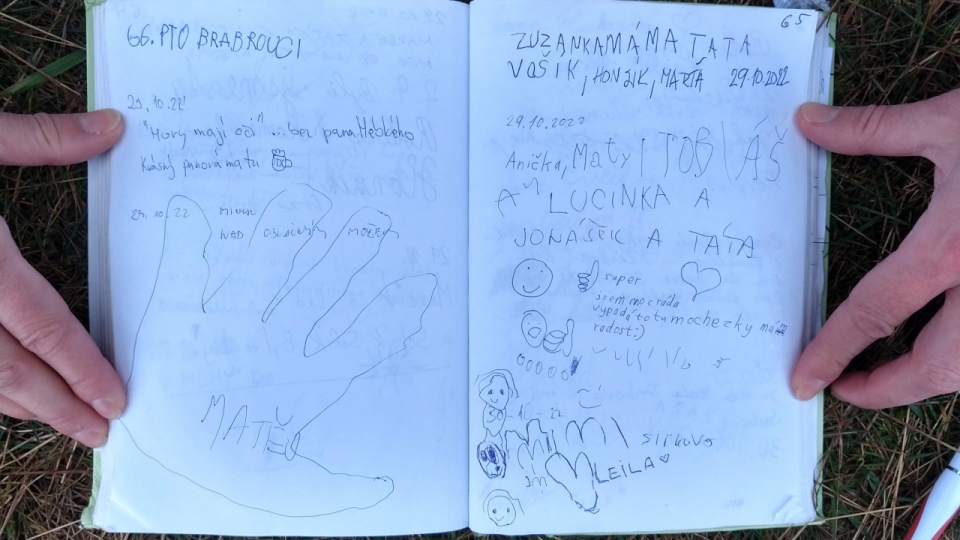 66. PTO BRABROUCI
29.10.22
"Hory mají oči" ... bez pana Hebkého
Krásný panoráma tu
29.10.22
NAD
MOŘEM
MATĚJ
65
ZUZANKA MÁMA TATA
VOŠIK, HONZIK, MARTA 29.10.2022
29.10.2022
Anička, Maty TOBIÁŠ
A LUCINKA A
JONÁŠEK A TATA
super
jsem moc ráda
vypadá to tu moc hezky mám
radost :)
30-10-22
MiMi
LEILA